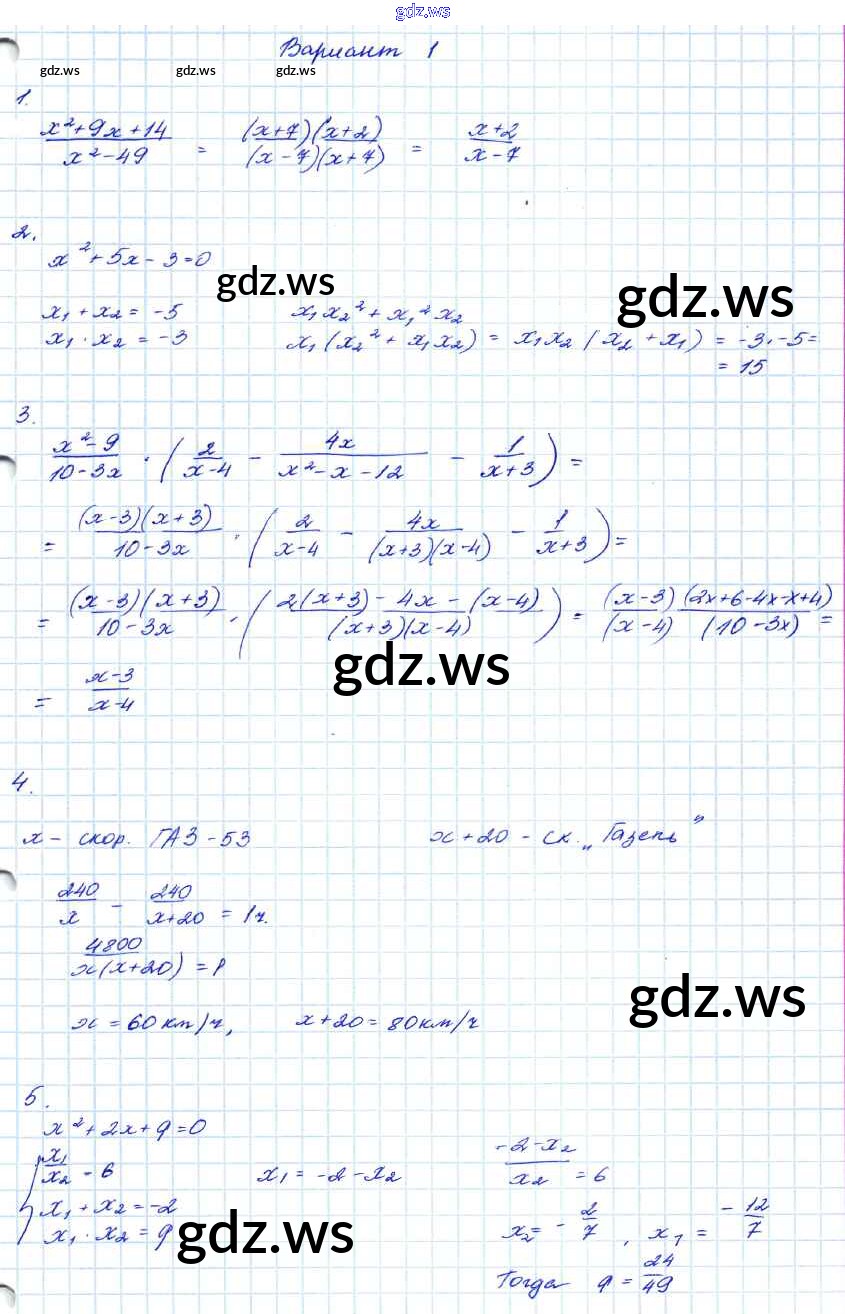 gdz.ws
Вариант 1
gdz.ws gdz.ws gdz.ws
1.
(x²+9x+14)/(x²-49) = ((x+7)(x+2))/((x-7)(x+7)) = (x+2)/(x-7)
2.
x²+5x-3=0
gdz.ws
gdz.ws
x₁+x₂=-5 x₁x₂²+x₁²x₂
x₁·x₂=-3 x₁(x₂²+x₁x₂) = x₁x₂(x₂+x₁) = -3·-5=
= 15
3.
(x²-9)/(10-3x) · (2/(x-4) - 4x/(x²-x-12) - 1/(x+3)) =
= ((x-3)(x+3))/(10-3x) · (2/(x-4) - 4x/((x+3)(x-4)) - 1/(x+3)) =
= ((x-3)(x+3))/(10-3x) · ((2(x+3)-4x-(x-4))/((x+3)(x-4))) = ((x-3)(2x+6-4x-x+4))/((x-4)(10-3x)) =
gdz.ws
= (x-3)/(x-4)
4.
x - скор. ГАЗ-53 x+20 - ск. „Газель"
240/x - 240/(x+20) = 1ч.
4800/(x(x+20)) = 1
gdz.ws
x = 60 км/ч, x+20 = 80 км/ч
5.
x²+2x+q=0
x₁/x₂ = 6 x₁ = -2-x₂ (-2-x₂)/x₂ = 6
x₁+x₂=-2
x₁·x₂=q x₂= -2/7, x₁ = -12/7
gdz.ws
Тогда q = 24/49